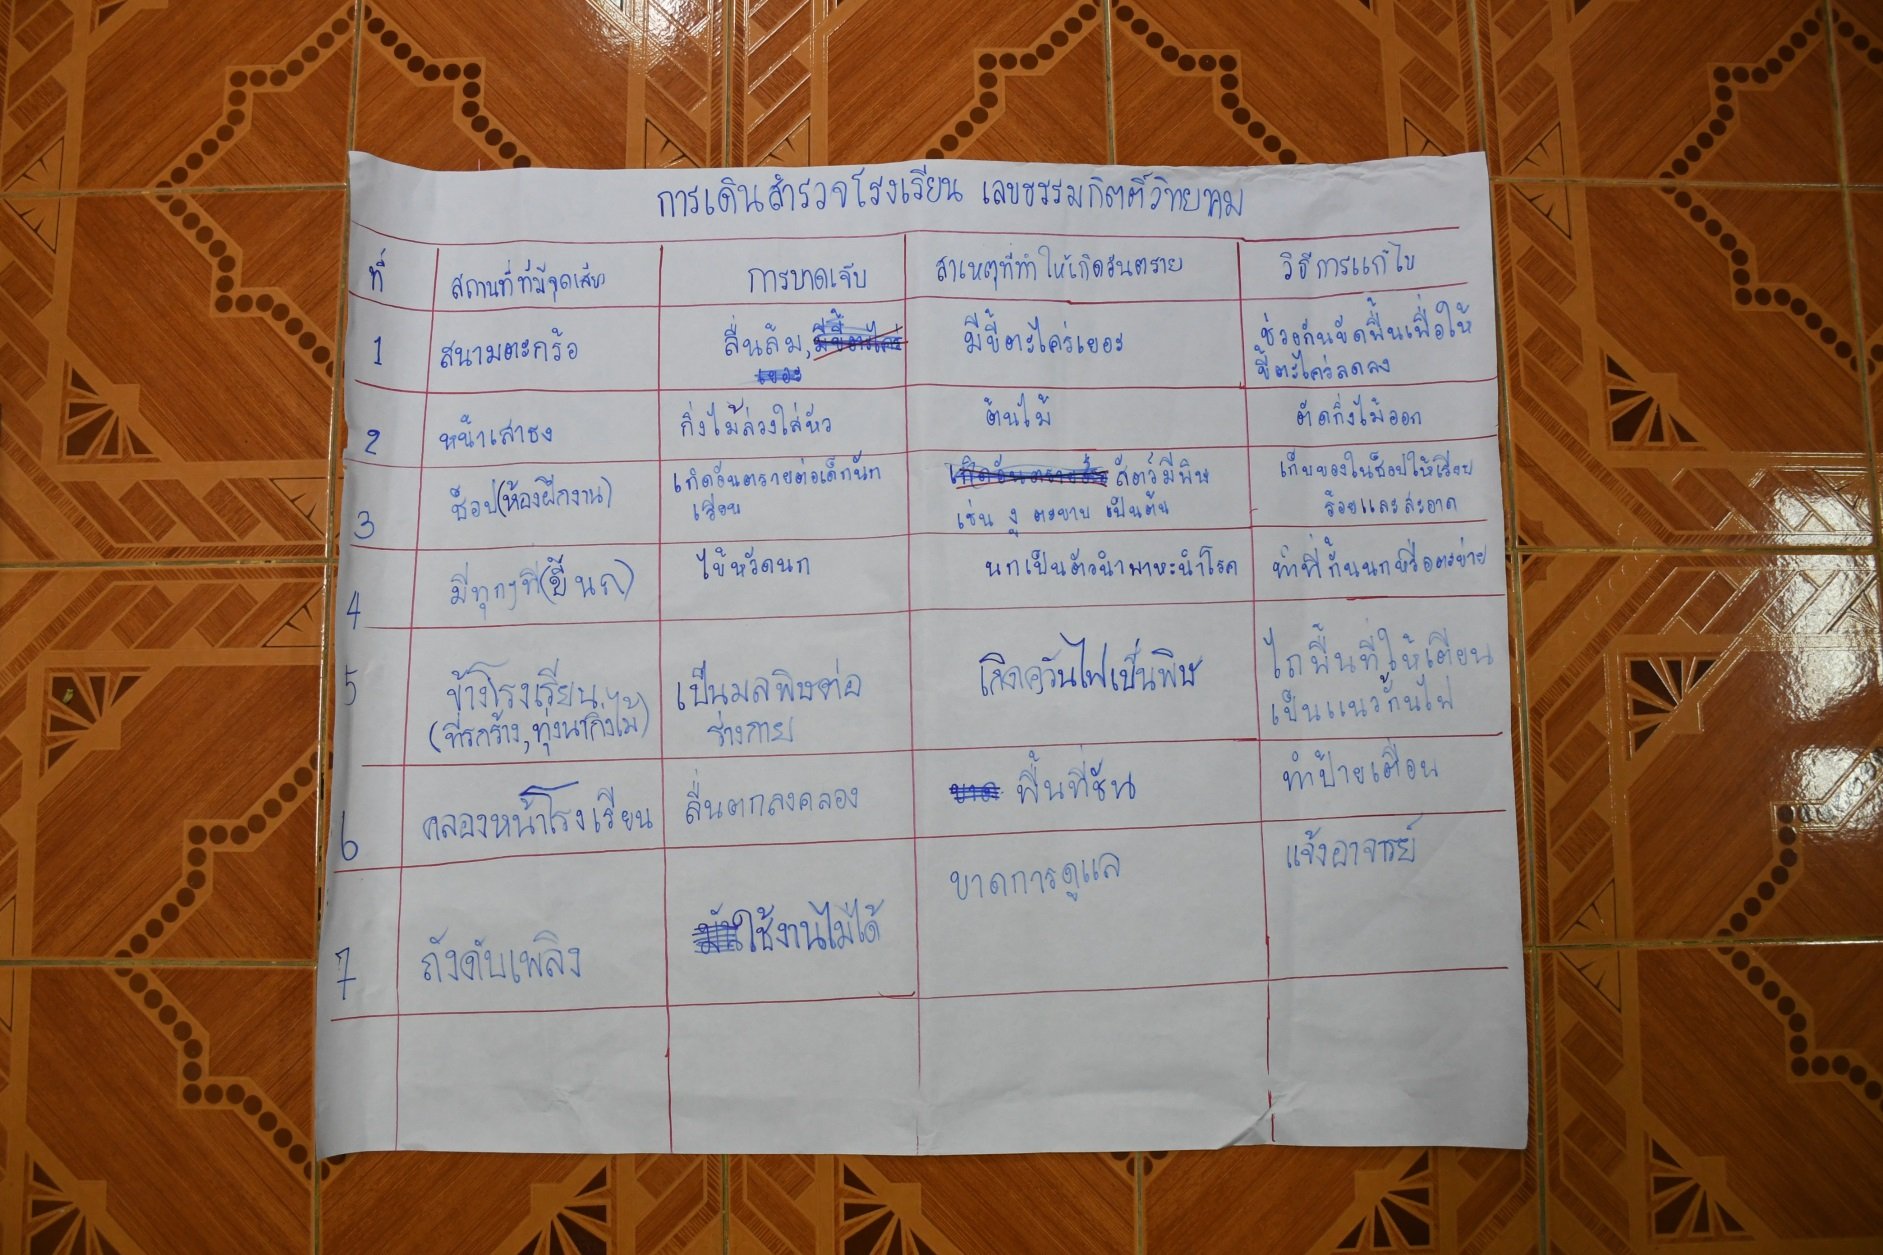 การเดินสำรวจโรงเรียน เลขธรรมกิตติ์วิทยาคม
ที่ สถานที่ที่มีจุดเสี่ยง การบาดเจ็บ สาเหตุที่ทำให้เกิดอันตราย วิธีการแก้ไข
1 สนามตะกร้อ ลื่นล้ม, มีขี้ตะไคร่เยอะ ช่วงกันขัดพื้นเพื่อให้
ขี้ตะไคร่ลดลง
2 หน้าเสาธง กิ่งไม้ล่วงใส่หัว ต้นไม้ ตัดกิ่งไม้ออก
3 ช็อป(ห้องฝึกงาน) เกิดอันตรายต่อเด็กนัก สัตว์มีพิษ เก็บของในช็อปให้เรียบ
เรียน เช่น งู ตะขาบ เป็นต้น ร้อยและสะอาด
4 มีทุกๆที่(ขี้นก) ไข้หวัดนก นกเป็นตัวนำพาหะนำโรค ทำที่กั้นนกหรือตะข่าย
5 ข้างโรงเรียน เป็นมลพิษต่อ เกิดควันไฟเป็นพิษ ไถพื้นที่ให้เตียน
(ที่รกร้าง,ทุ่งนากิ่งไม้) ร่างกาย เป็นแนวกั้นไฟ
6 คลองหน้าโรงเรียน ลื่นตกลงคลอง พื้นที่ชัน ทำป้ายเตือน
7 ถังดับเพลิง ใช้งานไม่ได้ ขาดการดูแล แจ้งอาจารย์